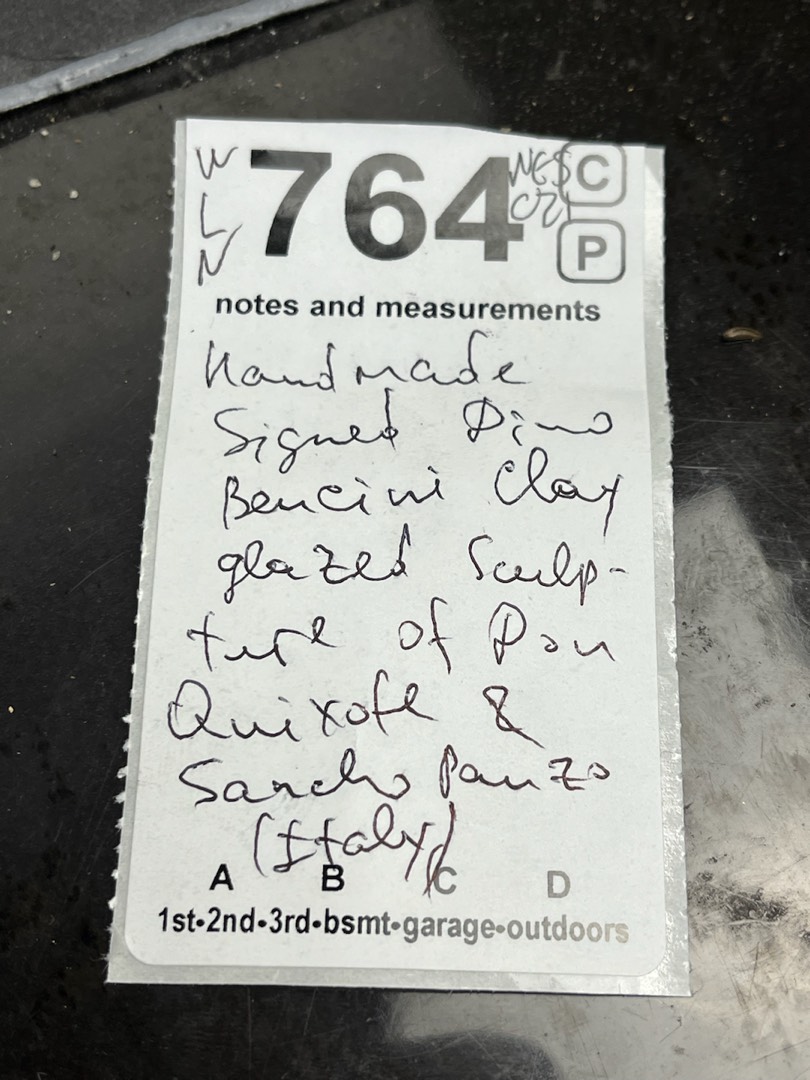 W 764 C
L
N P
notes and measurements
Handmade
Signed Dino
Bencini Clay
glazed Sculp-
ture of Don
Quixote &
Sancho Panzo
(Italy)
A B C D
1st•2nd•3rd•bsmt•garage•outdoors